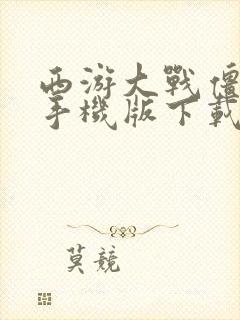 西游大戰僵
手機版下載
莫競